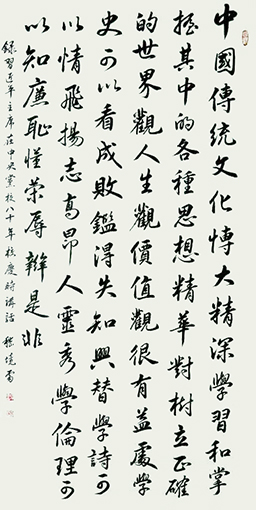 中國傳統文化博大精深學習和掌
握其中的各種思想精華對樹立正確
的世界觀人生觀價值觀很有益處學
史可以看成敗鑑得失知興替學詩可
以情飛揚志高昂人靈秀學倫理可
以知廉恥懂榮辱辨是非
錄習近平主席在中央黨校八十年校慶時講話